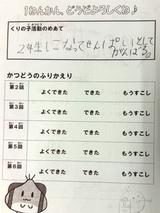 1ねんかん、どうぞよろしくね♪
くりの子活動のめあて
2年生になってせんぱいとして
がんばる。
かつどうのふりかえり
第2回 よくできた できた もうすこし
第3回 よくできた できた もうすこし
第4回 よくできた できた もうすこし
第5回 よくできた できた もうすこし
第6回 よくできた できた もうすこし